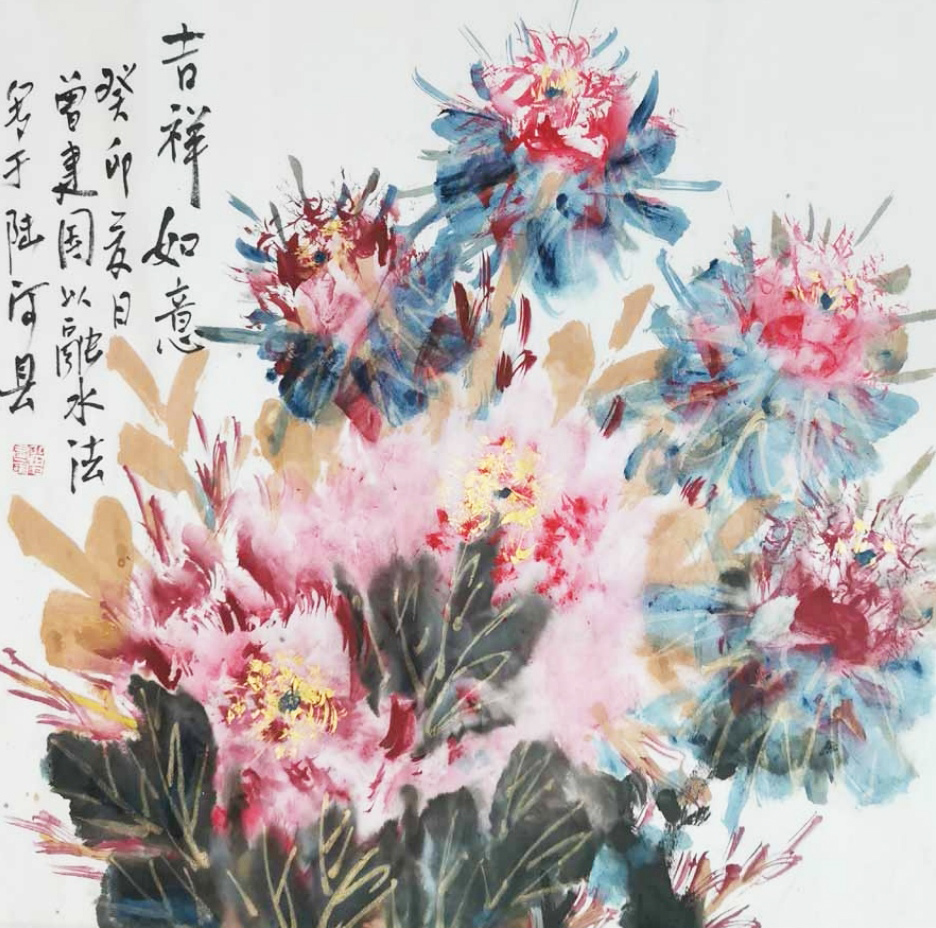 吉祥如意
癸卯夏日
曾建国以融水法
写于陆河县